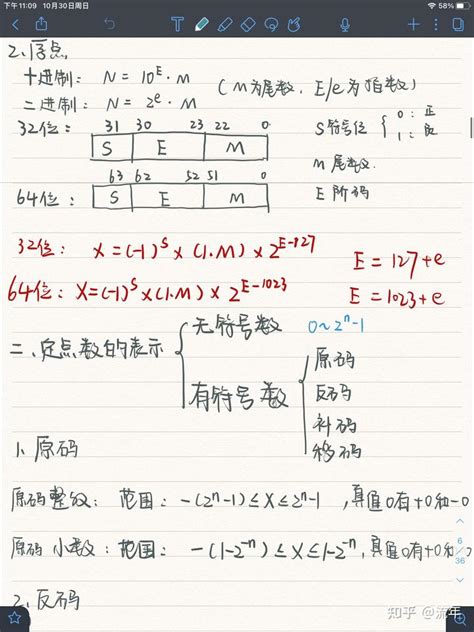 下午11:09 10月30日周日 58%
2.浮点
十进制: N = 10^E · M
(M为尾数, E/e为指数)
二进制: N = 2^e · M
32位: 31 30 23 22 0
S E M
S符号位 { 0: 正
1: 负
63 62 52 51 0
64位: S E M
M 尾数
E 阶码
32位: X=(-1)^S×(1.M)×2^E-127 E=127+e
64位: X=(-1)^S×(1.M)×2^E-1023 E=1023+e
二、定点数的表示
无符号数 0~2^n-1
有符号数
原码
反码
补码
移码
1、原码
原码整数: 范围: -(2^n-1)≤X≤2^n-1, 真值0有+0和-0
原码小数: 范围: -(1-2^-n)≤X≤1-2^-n, 真值0有+0和
2、反码
6
/
36
知乎 @流年